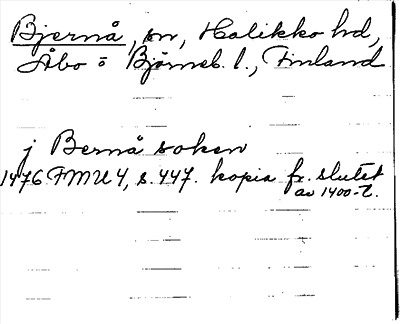 Bjernå, sn, Halikko hd,
Åbo o Björneb. l., Finland
j Bernå soken
1476 FMU 4, s. 447. kopia fr. slutet
av 1400-t.